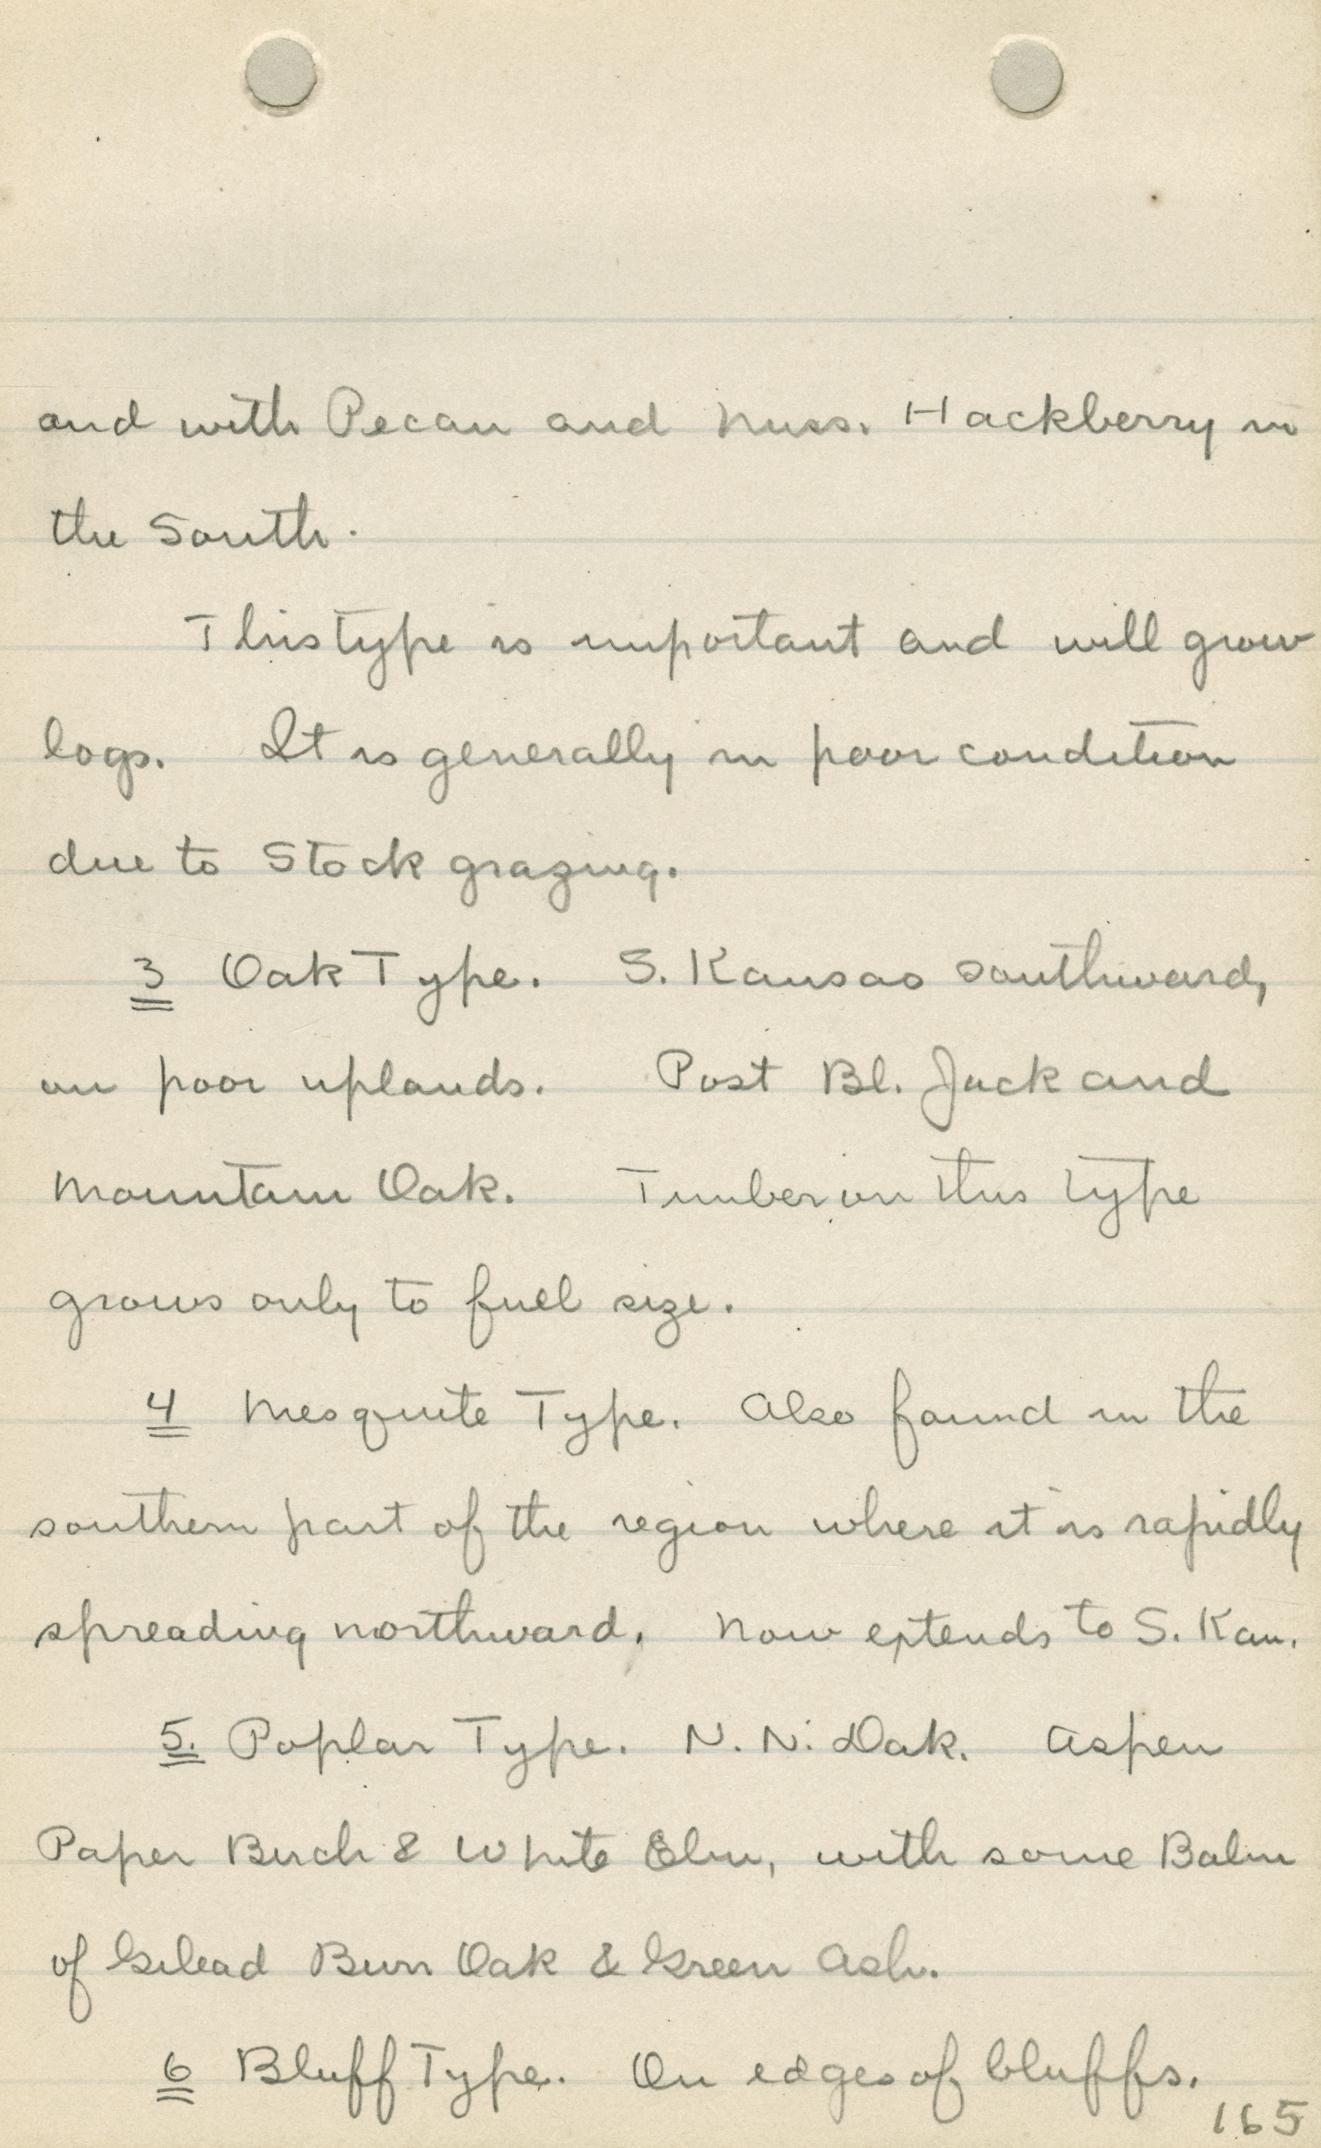 and with Pecan and Miss. Hackberry in
the South.
This type is important and will grow
logs. It is generally in poor condition
due to Stock grazing.
3 Oak Type. S. Kansas southward,
on poor uplands. Post Bl. Jack and
Mountain Oak. Timber on this type
grows only to fuel size.
4 Mesquite Type. Also found in the
southern part of the region where it is rapidly
spreading northward. Now extends to S. Kan.
5. Poplar Type. N. N. Dak. Aspen
Paper Birch & White Elm, with some Balm
of Gilead Burr Oak & Green Ash.
6 Bluff Type. On edges of bluffs.
165